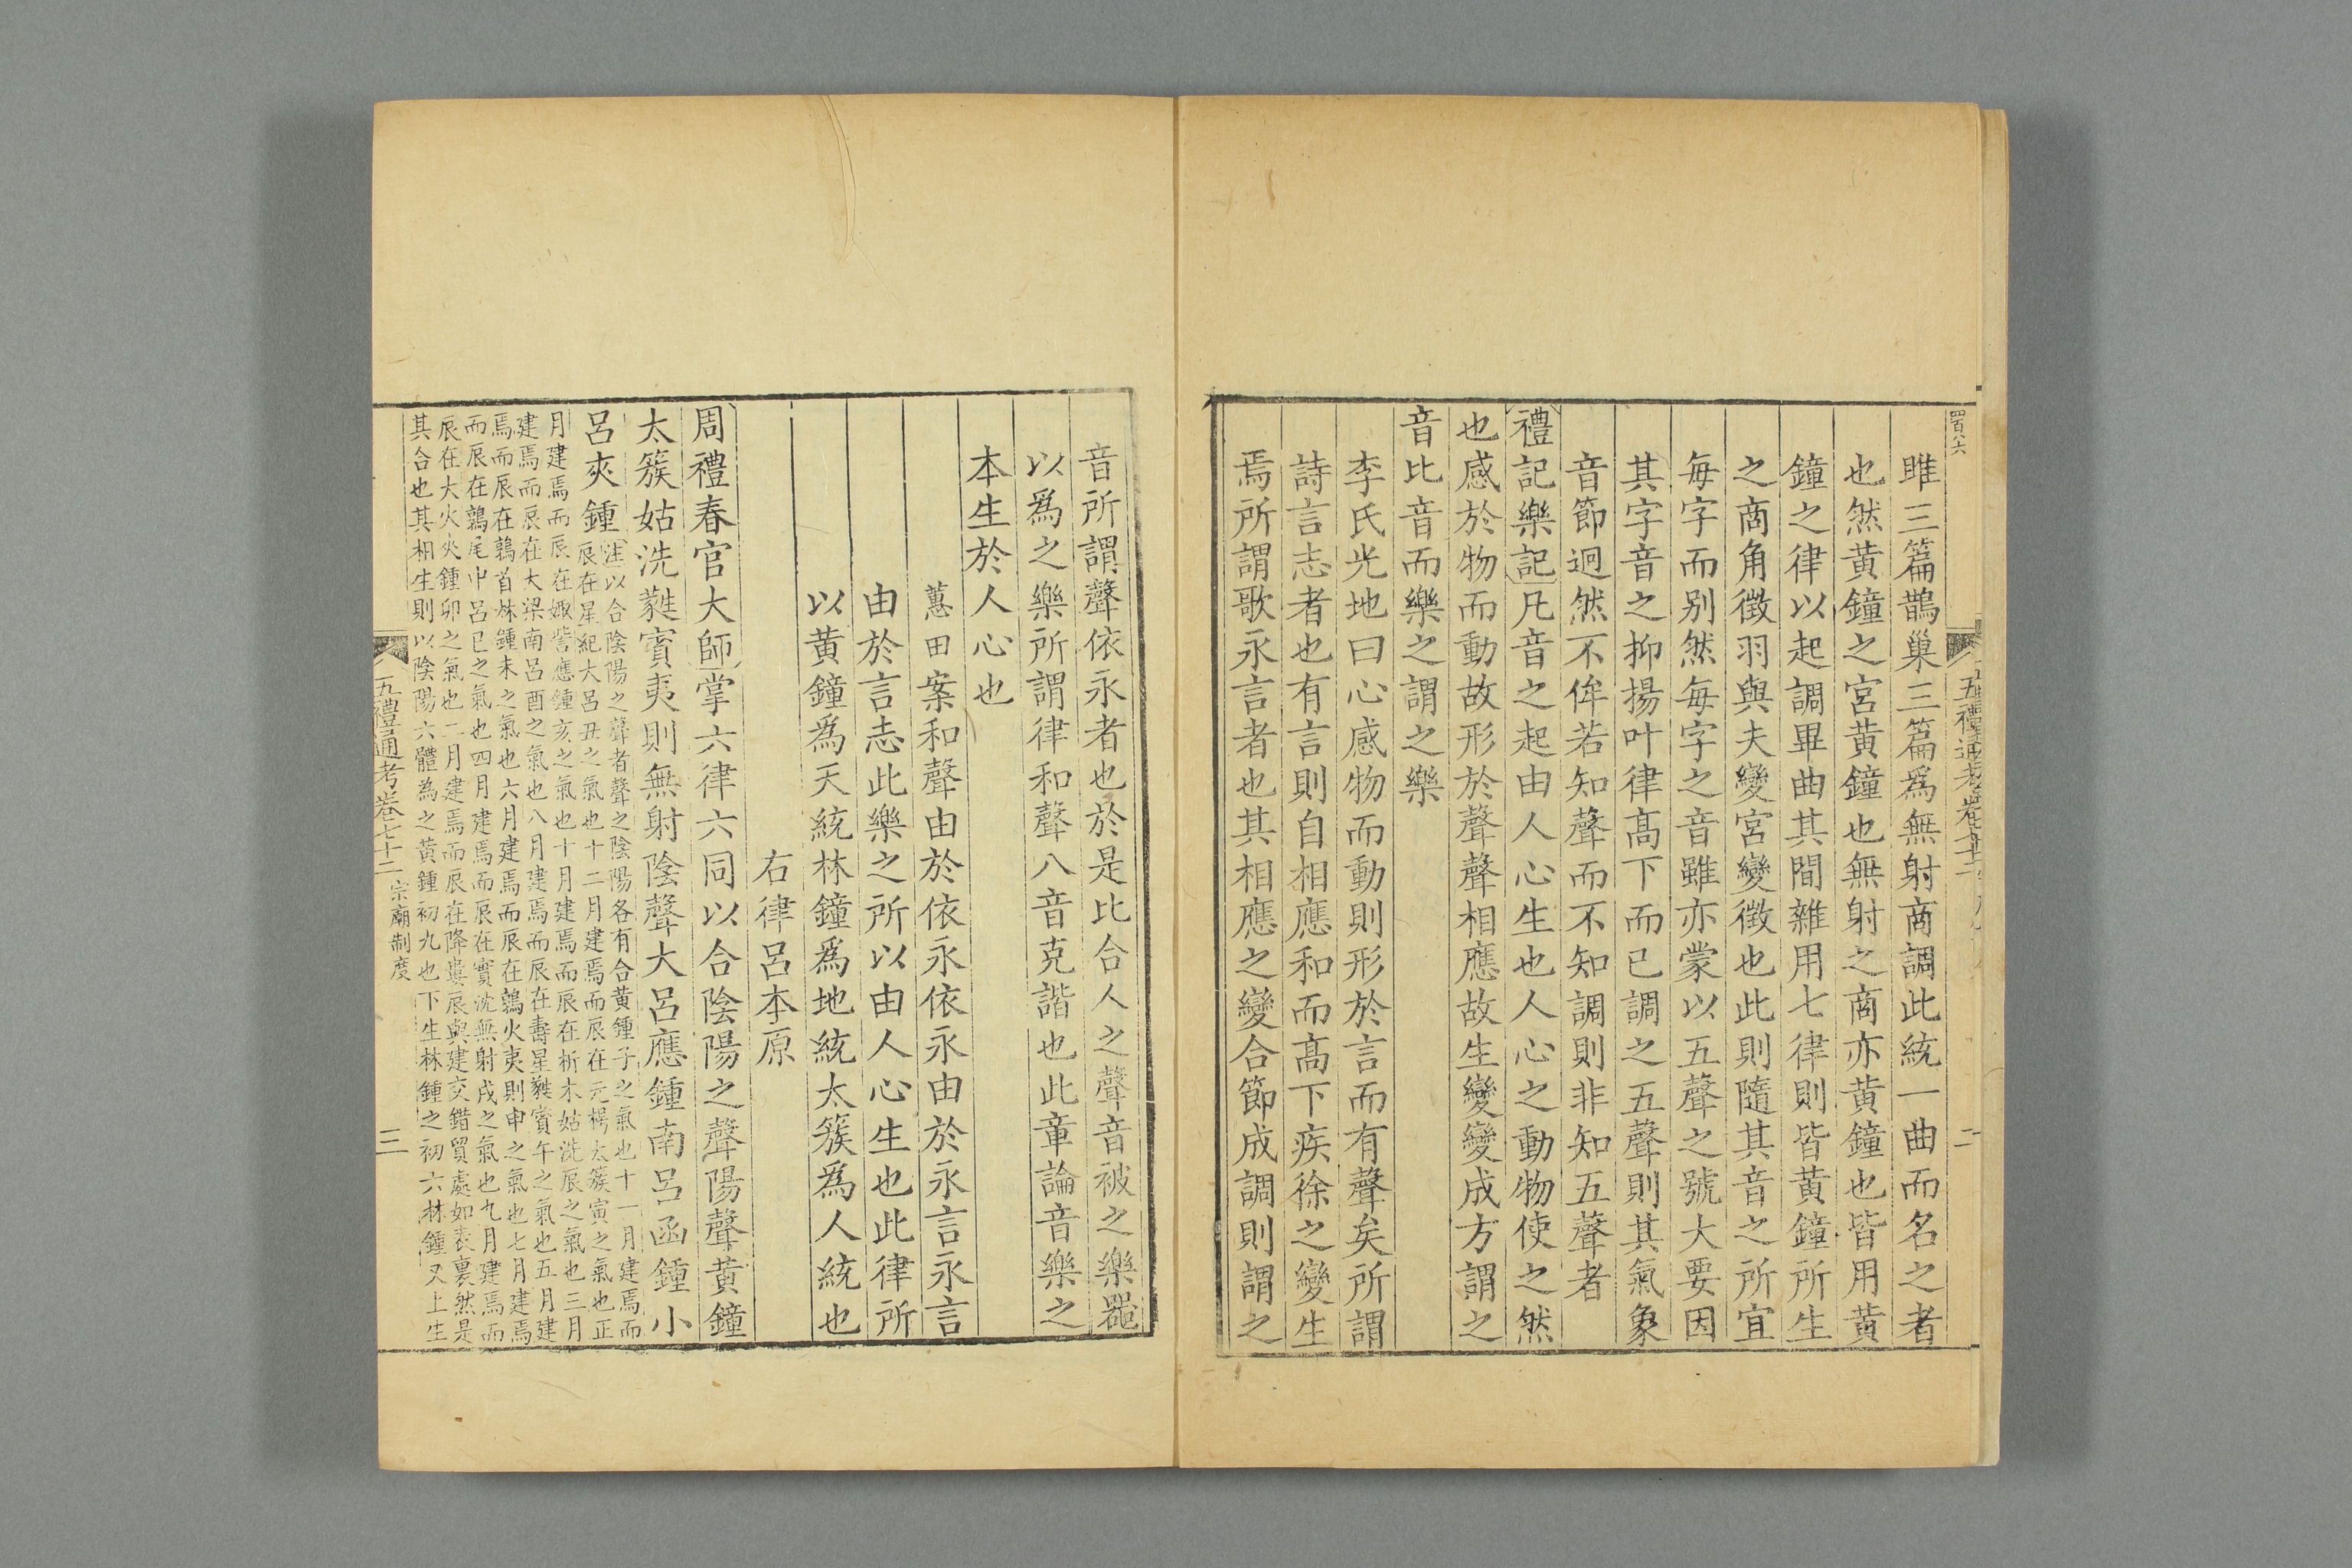 四百八六
五禮通考卷七十二
二
雎三篇鵲巢三篇爲無射商調此統一曲而名之者
也然黃鐘之宮黃鐘也無射之商亦黃鐘也皆用黃
鐘之律以起調畢曲其間雜用七律則皆黃鐘所生
之商角徵羽與夫變宮變徵也此則隨其音之所宜
每字而别然每字之音雖亦蒙以五聲之號大要因
其字音之抑揚叶律髙下而已調之五聲則其氣象
音節迥然不侔若知聲而不知調則非知五聲者
禮記樂記凡音之起由人心生也人心之動物使之然
也感於物而動故形於聲聲相應故生變變成方謂之
音比音而樂之謂之樂
李氏光地曰心感物而動則形於言而有聲矣所謂
詩言志者也有言則自相應和而髙下疾徐之變生
焉所謂歌永言者也其相應之變合節成調則謂之
音所謂聲依永者也於是比合人之聲音被之樂器
以爲之樂所謂律和聲八音克諧也此章論音樂之
本生於人心也
蕙田案和聲由於依永依永由於永言永言
由於言志此樂之所以由人心生也此律所
以黃鐘爲天統林鐘爲地統太簇爲人統也
右律呂本原
周禮春官大師掌六律六同以合陰陽之聲陽聲黃鐘
太簇姑洗蕤賓夷則無射陰聲大呂應鍾南呂函鍾小
呂夾鍾注以合陰陽之聲者聲之陰陽各有合黃鍾子之氣也十一月建焉而
辰在星紀大呂丑之氣也十二月建焉而辰在元枵太簇寅之氣也正
月建焉而辰在娵訾應鍾亥之氣也十月建焉而辰在析木姑洗辰之氣也三月
建焉而辰在大梁南呂酉之氣也八月建焉而辰在壽星蕤賓午之氣也五月建
焉而辰在鶉首林鍾未之氣也六月建焉而辰在鶉火夷則申之氣也七月建焉
而辰在鶉尾中呂巳之氣也四月建焉而辰在實沈無射戌之氣也九月建焉而
辰在大火夾鍾卯之氣也二月建焉而辰在降婁辰與建交錯貿處如表裏然是
其合也其相生則以陰陽六體為之黃鍾初九也下生林鍾之初六林鍾又上生
五禮通考卷七十二 宗廟制度
三